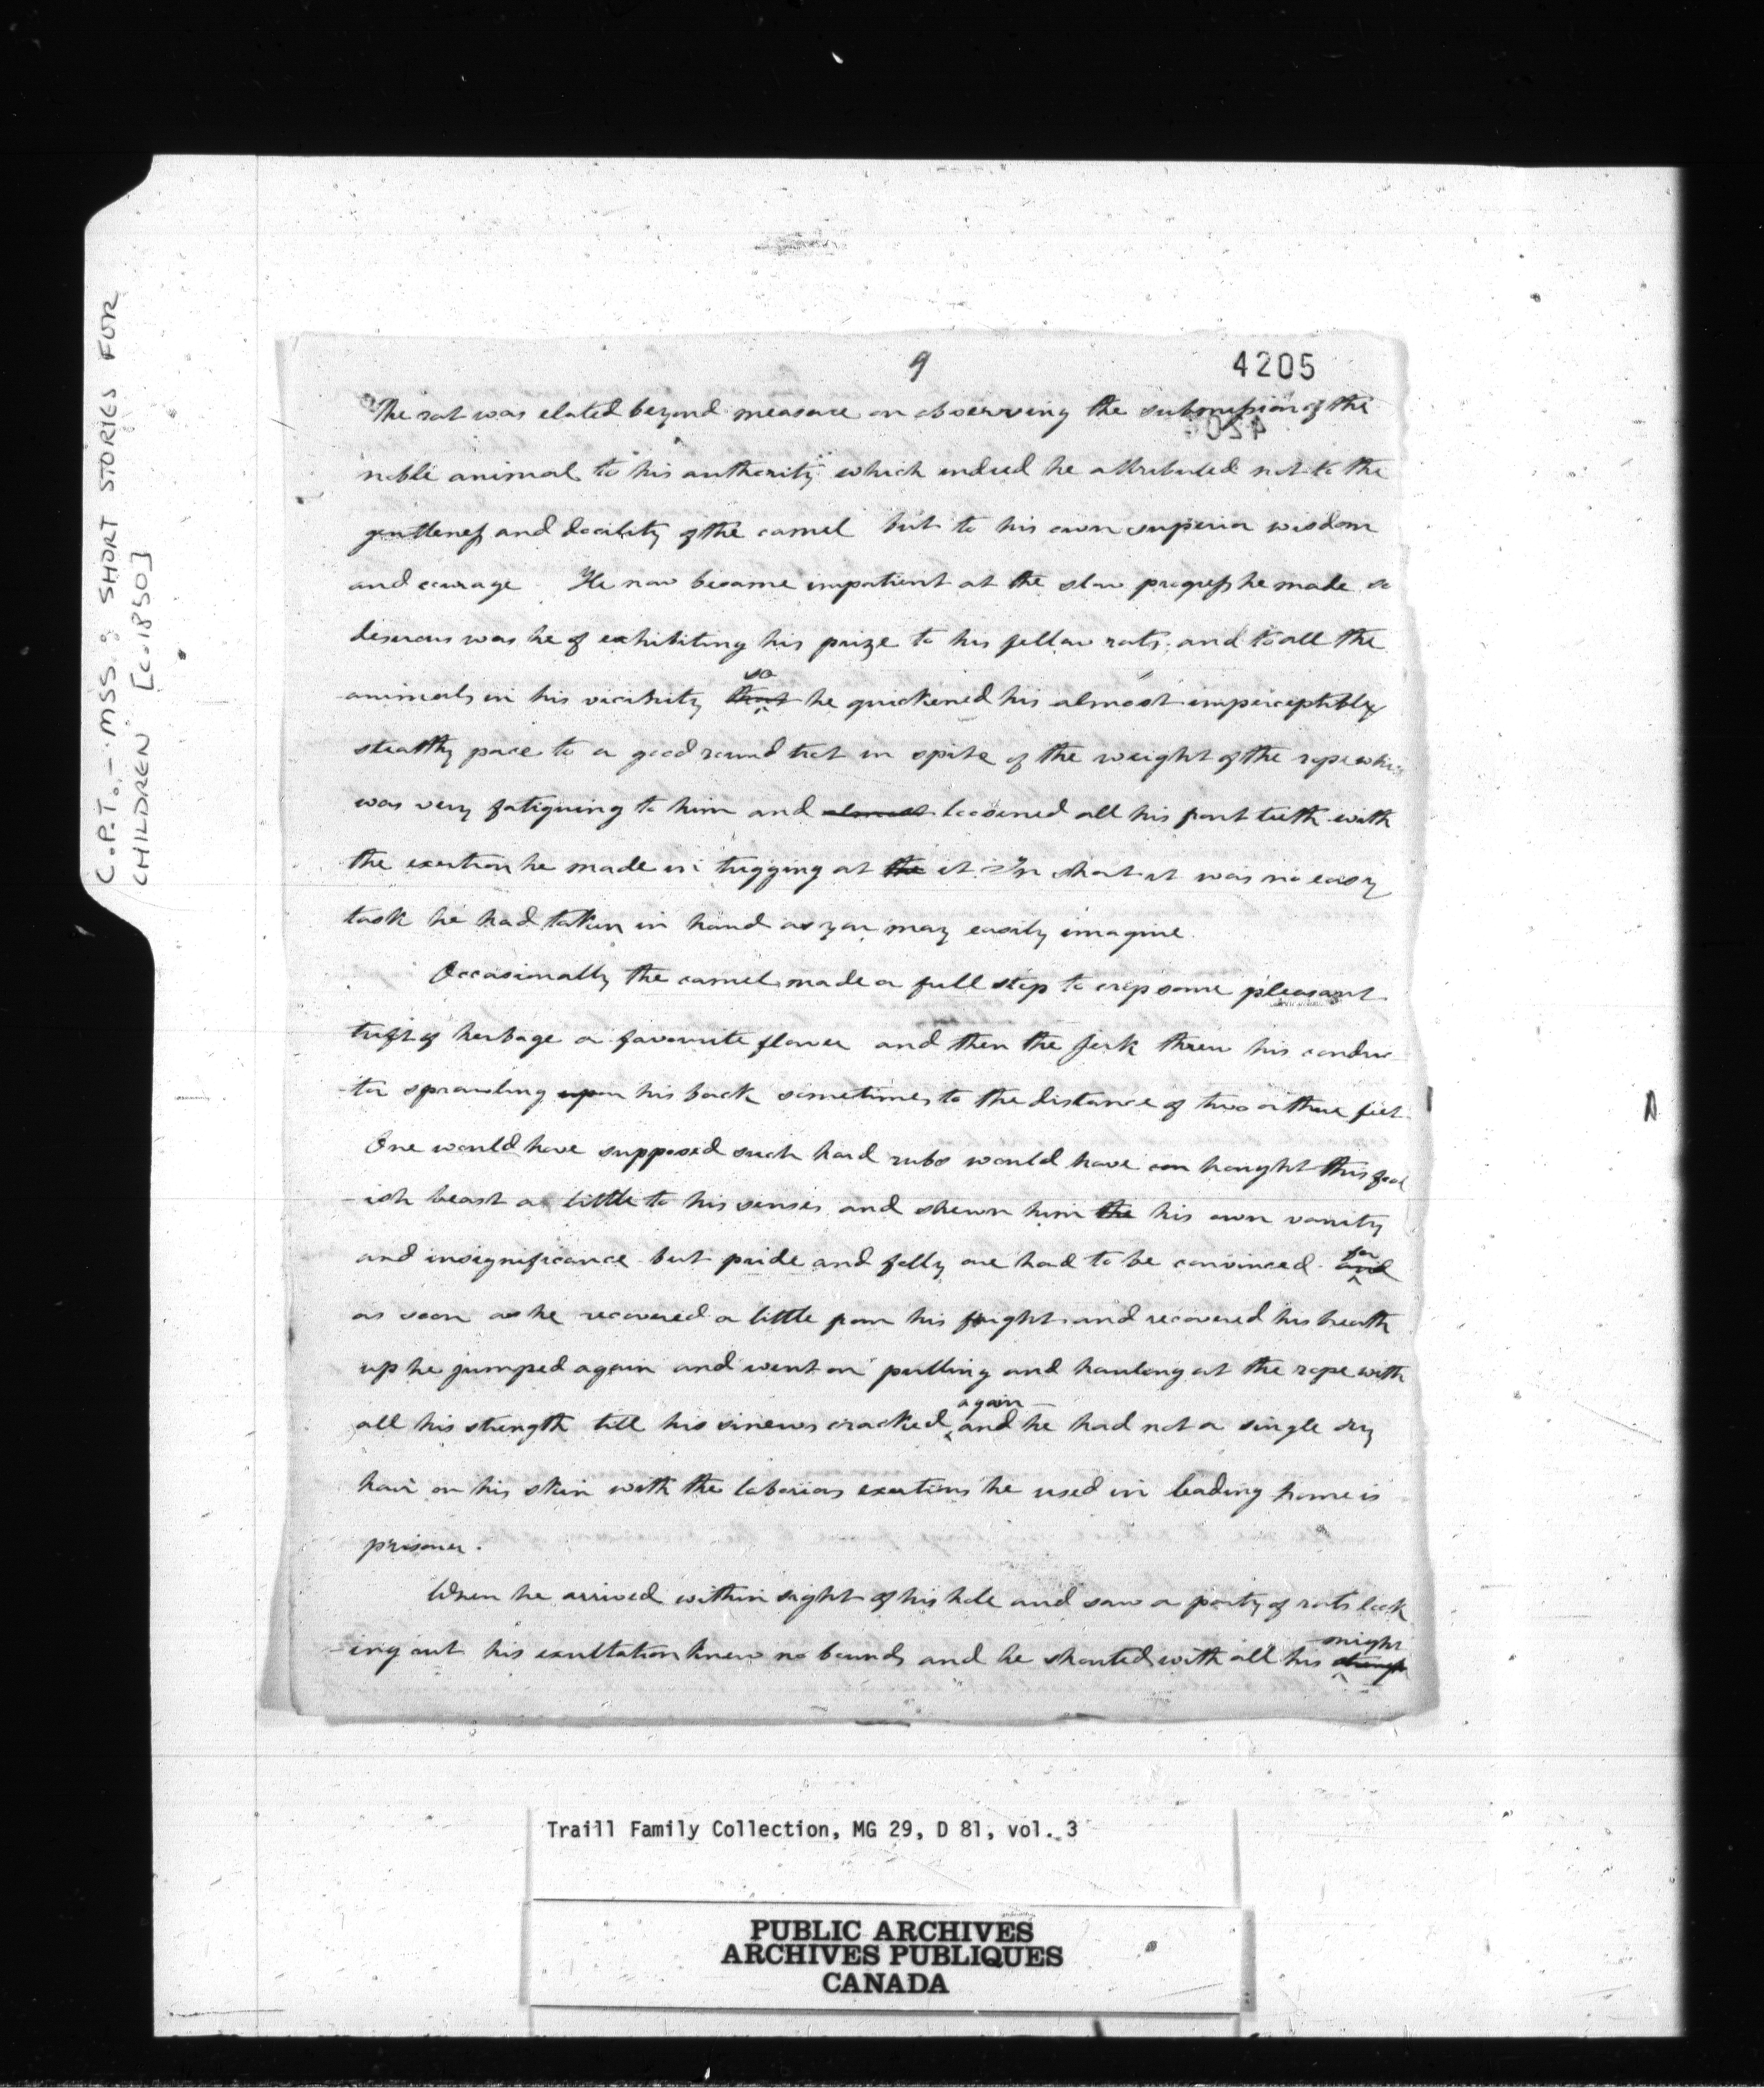 C.P.T. - MSS.: SHORT STORIES FOR
CHILDREN [c.1850]
9
4205
The rat was elated beyond measure on observing the submission of the
noble animal to his authority which indeed he attributed not to the
gentleness and docility of the camel but to his own superior wisdom
and courage He now became impatient at the slow progress he made so
desirous was he of exhibiting his prize to his fellow rats, and to all the
so
animals in his vicinity that he quickened his almost imperceptibly
stealthy pace to a good round trot in spite of the weight of the rope which
was very fatiguing to him and almost loosened all his front teeth with
the exertion he made in tugging at the it In short it was no easy
task he had taken in hand as you may easily imagine.
Occasionally the camel made a full stop to crop some pleasant
tuft of herbage or favourite flower and then the jerk threw his conduc
-tor sprawling upon his back sometimes to the distance of two or three feet.
One would have supposed such hard rubs would have brought this fool
-ish beast a little to his senses and shewn him the his own vanity
and insignificance but pride and folly are hard to be convinced and
for
as soon as he recovered a little from his fright and recovered his breath
up he jumped again and went on pulling and hauling at the rope with
again
all his strength till his sinews cracked, and he had not a single dry
hair on his skin with the laborious exertions he used in leading home is
prisoner.
When he arrived within sight of his hole and saw a party of rats look
might
-ing out his exultation knew no bounds and he shouted with all his strength
Traill Family Collection, MG 29, D 81, vol. 3
PUBLIC ARCHIVES
ARCHIVES PUBLIQUES
CANADA